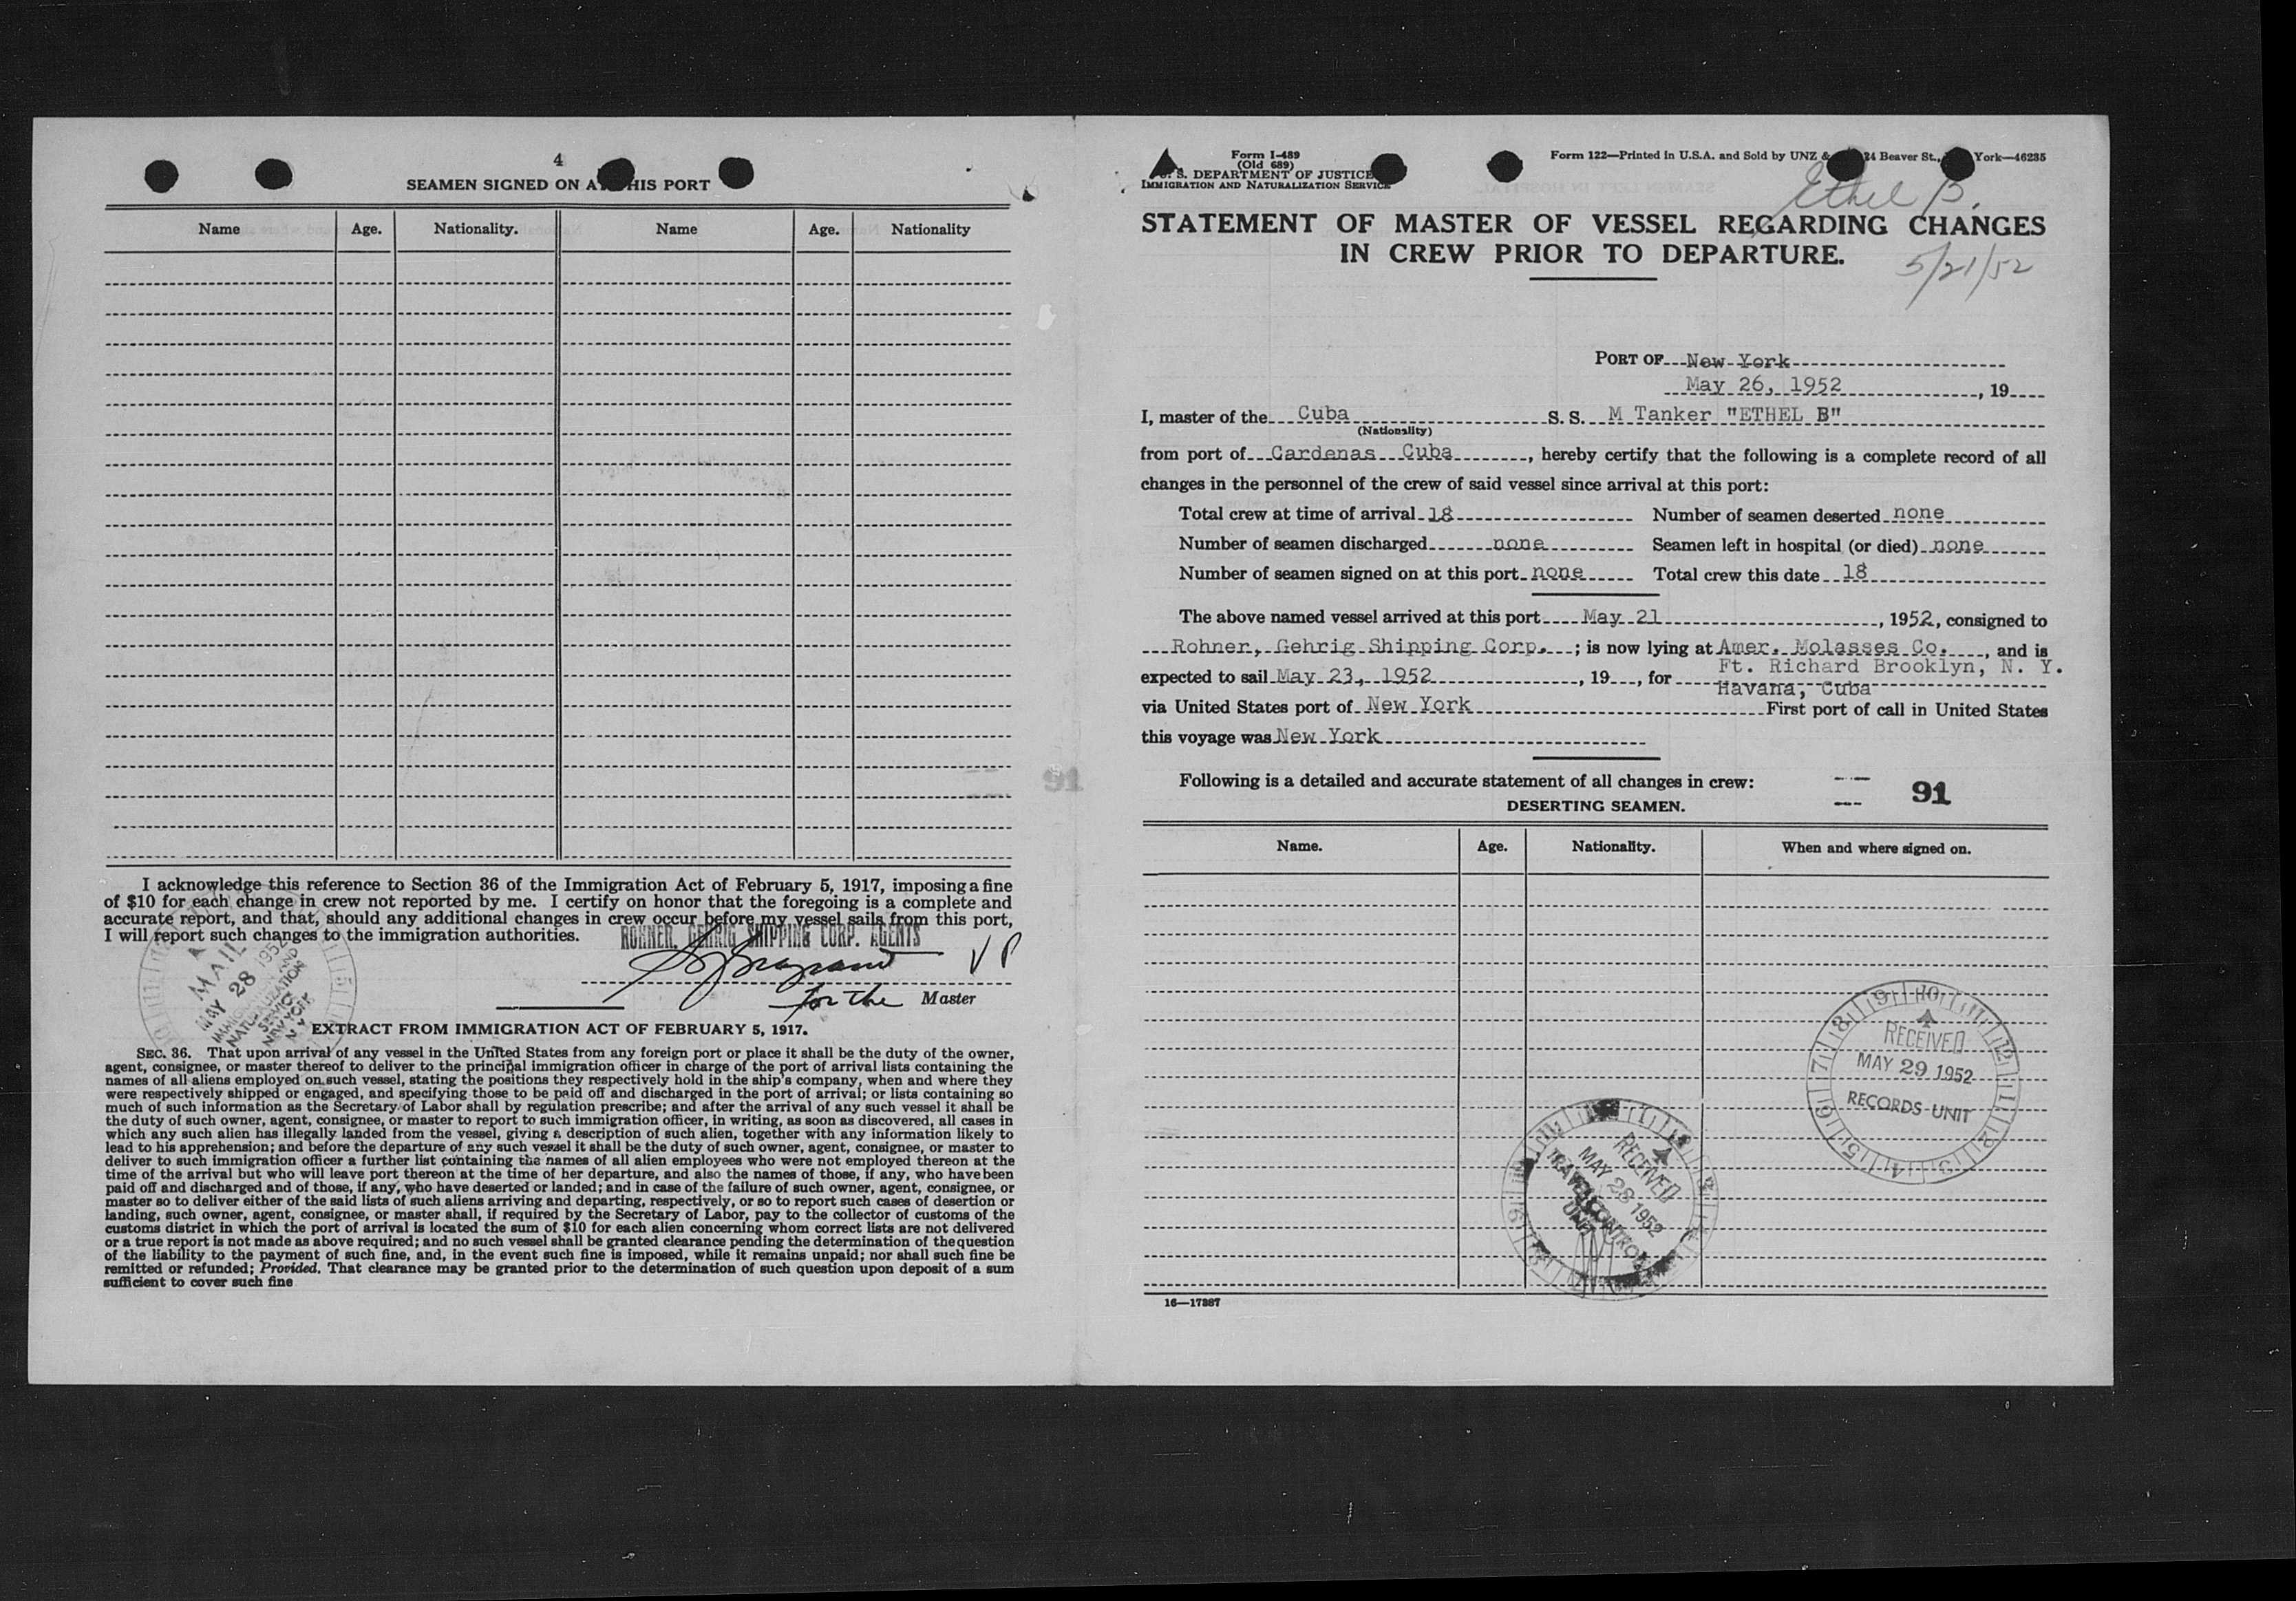 4
SEAMEN SIGNED ON AT THIS PORT
Name Age. Nationality. Name Age. Nationality
I acknowledge this reference to Section 36 of the Immigration Act of February 5, 1917, imposing a fine
of $10 for each change in crew not reported by me. I certify on honor that the foregoing is a complete and
accurate report, and that, should any additional changes in crew occur before my vessel sails from this port,
I will report such changes to the immigration authorities.
ROHNER, GEHRIG SHIPPING CORP. AGENTS
V P
for the Master
MAIL
MAY 28 1952
IMMIGRATION AND
NATURALIZATION
SERVICE
NEW YORK
N Y
EXTRACT FROM IMMIGRATION ACT OF FEBRUARY 5, 1917.
SEC. 36. That upon arrival of any vessel in the United States from any foreign port or place it shall be the duty of the owner,
agent, consignee, or master thereof to deliver to the principal immigration officer in charge of the port of arrival lists containing the
names of all aliens employed on such vessel, stating the positions they respectively hold in the ship's company, when and where they
were respectively shipped or engaged, and specifying those to be paid off and discharged in the port of arrival; or lists containing so
much of such information as the Secretary of Labor shall by regulation prescribe; and after the arrival of any such vessel it shall be
the duty of such owner, agent, consignee, or master to report to such immigration officer, in writing, as soon as discovered, all cases in
which any such alien has illegally landed from the vessel, giving a description of such alien, together with any information likely to
lead to his apprehension; and before the departure of any such vessel it shall be the duty of such owner, agent, consignee, or master to
deliver to such immigration officer a further list containing the names of all alien employees who were not employed thereon at the
time of the arrival but who will leave port thereon at the time of her departure, and also the names of those, if any, who have been
paid off and discharged and of those, if any, who have deserted or landed; and in case of the failure of such owner, agent, consignee, or
master so to deliver either of the said lists of such aliens arriving and departing, respectively, or so to report such cases of desertion or
landing, such owner, agent, consignee, or master shall, if required by the Secretary of Labor, pay to the collector of customs of the
customs district in which the port of arrival is located the sum of $10 for each alien concerning whom correct lists are not delivered
or a true report is not made as above required; and no such vessel shall be granted clearance pending the determination of the question
of the liability to the payment of such fine, and, in the event such fine is imposed, while it remains unpaid; nor shall such fine be
remitted or refunded; Provided, That clearance may be granted prior to the determination of such question upon deposit of a sum
sufficient to cover such fine
Form I-489
(Old 689)
U. S. DEPARTMENT OF JUSTICE
IMMIGRATION AND NATURALIZATION SERVICE
Form 122—Printed in U.S.A. and Sold by UNZ & 24 Beaver St., York—46285
Ethel B.
STATEMENT OF MASTER OF VESSEL REGARDING CHANGES
IN CREW PRIOR TO DEPARTURE.
5/21/52
PORT OF New York
May 26, 1952, 19
I, master of the Cuba S. S. M Tanker "ETHEL B"
(Nationality)
from port of Cardenas Cuba, hereby certify that the following is a complete record of all
changes in the personnel of the crew of said vessel since arrival at this port:
Total crew at time of arrival 18 Number of seamen deserted none
Number of seamen discharged none Seamen left in hospital (or died) none
Number of seamen signed on at this port none Total crew this date 18
The above named vessel arrived at this port May 21, 1952, consigned to
Rohner, Gehrig Shipping Corp.; is now lying at Amer. Molasses Co., and is
Ft. Richard Brooklyn, N. Y.
expected to sail May 23, 1952, 19, for Havana, Cuba
via United States port of New York First port of call in United States
this voyage was New York
Following is a detailed and accurate statement of all changes in crew:
91
DESERTING SEAMEN.
Name. Age. Nationality. When and where signed on.
RECEIVED
MAY 29 1952
RECORDS UNIT
RECEIVED
MAY 28 1952
TRAVEL CONTROL
UNIT
16—17387